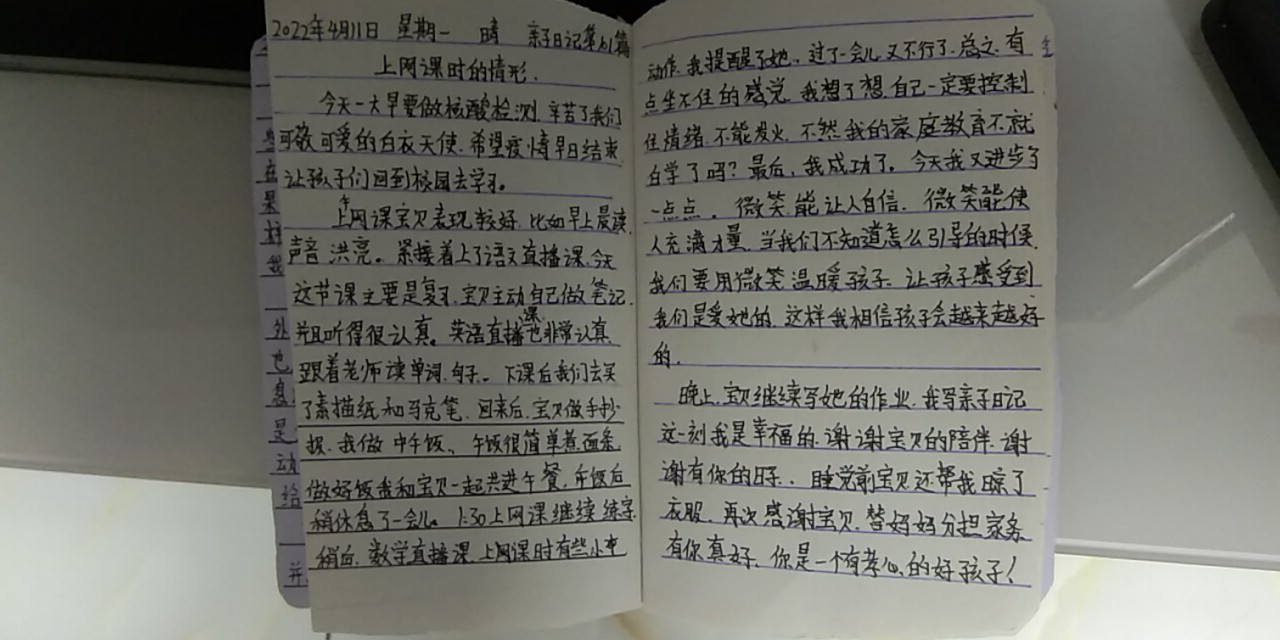 2022年4月11日 星期一 晴 亲子日记第61篇
上网课时的情形.
今天一大早要做核酸检测,辛苦了我们
可敬可爱的白衣天使.希望疫情早日结束
让孩子们回到校园去学习。
上午网课宝贝表现较好.比如早上晨读,
声音洪亮。紧接着上了语文直播课.今天
这节课主要是复习.宝贝主动自己做笔记.
并且听得很认真。英语直播课也非常认真
跟着老师读单词.句子。下课后我们去买
了素描纸和马克笔.回来后.宝贝做手抄
报.我做中午饭、午饭很简单煮面条
做好饭我和宝贝一起共进午餐.午饭后
稍休息了一会儿。1:30上网课继续练字.
稍后.数学直播课.上网课时有些小
动作.我提醒了她.过了一会儿又不行了.总之.有
点坐不住的感觉.我想了想.自己一定要控制
住情绪.不能发火.不然我的家庭教育不就
白学了吗?最后,我成功了。今天我又进步了
一点点。微笑能让人自信.微笑能使
人充满力量.当我们不知道怎么引导的时候.
我们要用微笑温暖孩子.让孩子感受到
我们是爱她的.这样我相信孩子会越来越好
的.
晚上.宝贝继续写她的作业.我写亲子日记
这一刻我是幸福的.谢谢宝贝的陪伴.谢
谢有你的日子.睡觉前宝贝还帮我晾了
衣服.再次感谢宝贝.替妈妈分担家务
有你真好.你是一个有孝心的好孩子!